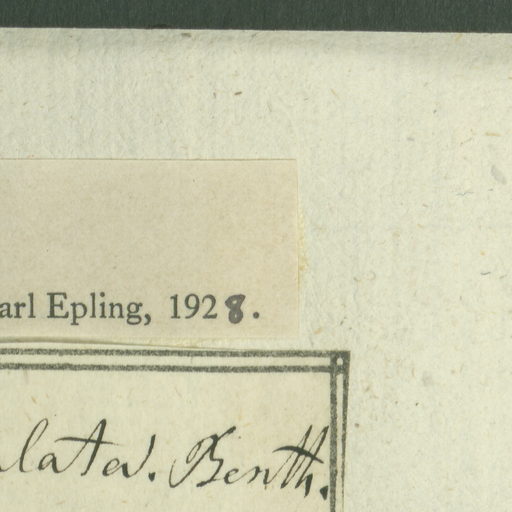 arl Epling, 1928.
lata. Benth.